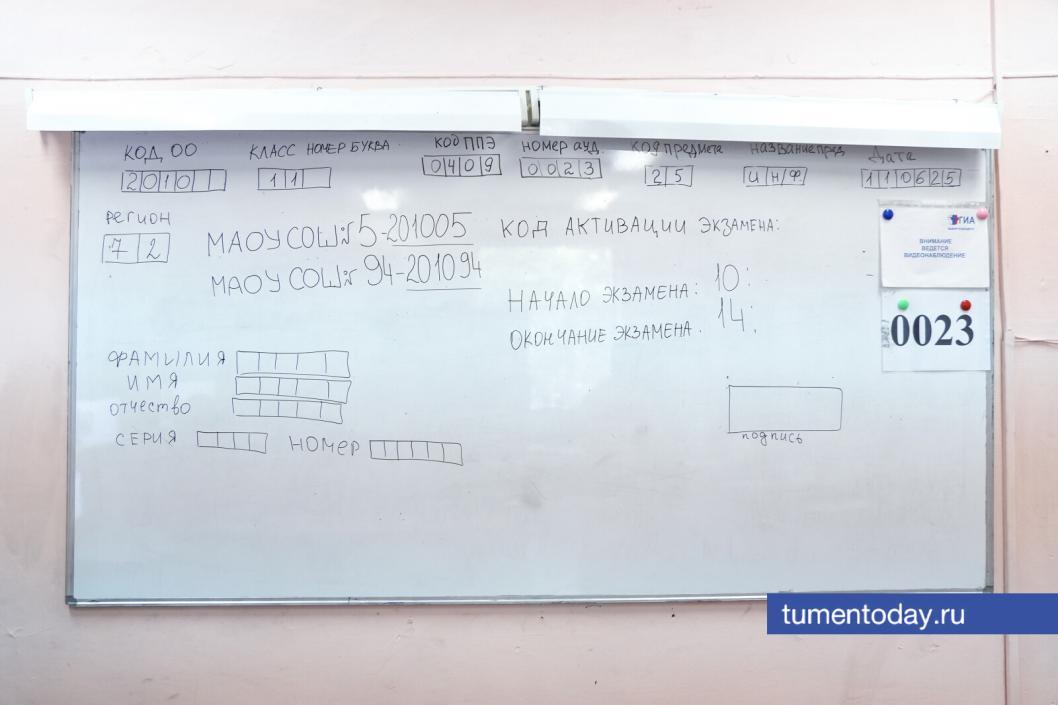 КОД ОО КЛАСС НОМЕР БУКВА КОД ППЭ НОМЕР АУД. КОД ПРЕДМЕТА НАЗВАНИЕ ПРЕД ДАТА
2010 11 0409 0023 25 ИНФ 110625
РЕГИОН
72
МАОУ СОШ№ 5-201005
МАОУ СОШ№ 94-201094
КОД АКТИВАЦИИ ЭКЗАМЕНА:
НАЧАЛО ЭКЗАМЕНА: 10:
ОКОНЧАНИЕ ЭКЗАМЕНА. 14:
ГИА
ВНИМАНИЕ
ВЕДЕТСЯ
ВИДЕОНАБЛЮДЕНИЕ
0023
ФАМИЛИЯ
ИМЯ
ОТЧЕСТВО
СЕРИЯ НОМЕР
ПОДПИСЬ
tumentoday.ru